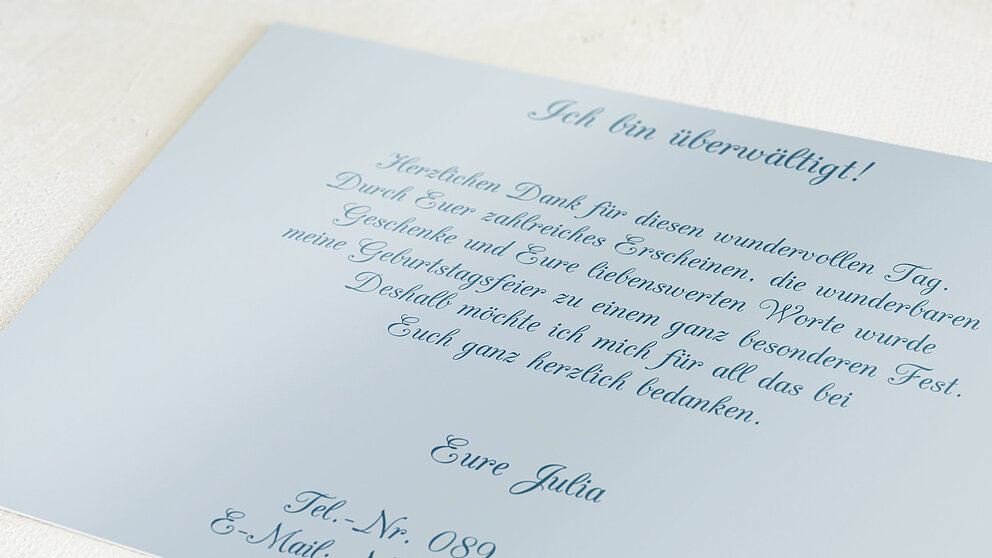 Ich bin überwältigt!
Herzlichen Dank für diesen wundervollen Tag.
Durch Euer zahlreiches Erscheinen, die wunderbaren
Geschenke und Eure liebenswerten Worte wurde
meine Geburtstagsfeier zu einem ganz besonderen Fest.
Deshalb möchte ich mich für all das bei
Euch ganz herzlich bedanken.
Eure Julia
Tel.-Nr. 089
E-Mail: